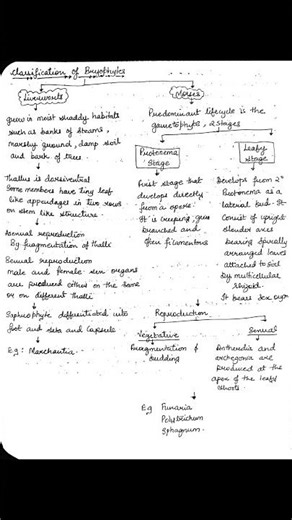 Classification of Bryophytes
Liverworts
grow in moist shaddy habitats
such as banks of streams,
marshy ground, damp soil
and bark of trees
Thallus is dorsiventral
Some members have tiny leaf
like appendages in two rows
on stem like structure.
Asexual reproduction
By fragmentation of thalli
Sexual reproduction
male and female sex organs
are produced either on the same
or on different thalli
Saprophyte differentiated into
foot and seta and capsule
Eg: Marchantia.
Mosses
Predominant lifecycle is the
gametophyte, 2 stages
Protonema
Stage
First stage that
develops directly
from a spore.
It is creeping, green
branched and
often filamentous
Leafy
Stage
Develops from 2°
Protonema as a
lateral bud. It
Consist of upright
slender axes
bearing spirally
arranged leaves
attached to soil
by multicellular
It bears sex
Reproduction
Vegetative
Fragmentation &
budding
Sexual
Antheridia and
archegonia are
produced at the
apex of the leafy
shoots.
Eg Funaria
Polytrichum
Sphagnum.